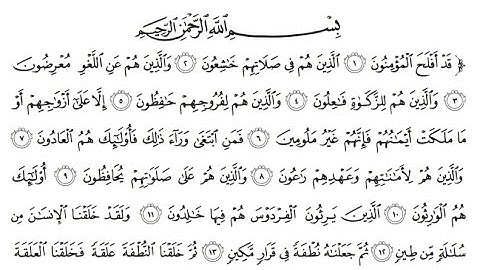 بِسْمِ اللَّهِ الرَّحْمَٰنِ الرَّحِيمِ
﴿ قَدْ أَفْلَحَ الْمُؤْمِنُونَ ۝١ الَّذِينَ هُمْ فِي صَلَاتِهِمْ خَاشِعُونَ ۝٢ وَالَّذِينَ هُمْ عَنِ اللَّغْوِ مُعْرِضُونَ
۝٣ وَالَّذِينَ هُمْ لِلزَّكَوٰةِ فَاعِلُونَ ۝٤ وَالَّذِينَ هُمْ لِفُرُوجِهِمْ حَافِظُونَ ۝٥ إِلَّا عَلَىٰ أَزْوَاجِهِمْ أَوْ
مَا مَلَكَتْ أَيْمَانُهُمْ فَإِنَّهُمْ غَيْرُ مَلُومِينَ ۝٦ فَمَنِ ابْتَغَىٰ وَرَاءَ ذَٰلِكَ فَأُولَٰئِكَ هُمُ الْعَادُونَ ۝٧
وَالَّذِينَ هُمْ لِأَمَانَاتِهِمْ وَعَهْدِهِمْ رَاعُونَ ۝٨ وَالَّذِينَ هُمْ عَلَىٰ صَلَوَاتِهِمْ يُحَافِظُونَ ۝٩ أُولَٰئِكَ
هُمُ الْوَارِثُونَ ۝١٠ الَّذِينَ يَرِثُونَ الْفِرْدَوْسَ هُمْ فِيهَا خَالِدُونَ ۝١١ وَلَقَدْ خَلَقْنَا الْإِنْسَانَ مِن
سُلَالَةٍ مِّن طِينٍ ۝١٢ ثُمَّ جَعَلْنَاهُ نُطْفَةً فِي قَرَارٍ مَّكِينٍ ۝١٣ ثُمَّ خَلَقْنَا النُّطْفَةَ عَلَقَةً فَخَلَقْنَا الْعَلَقَةَ